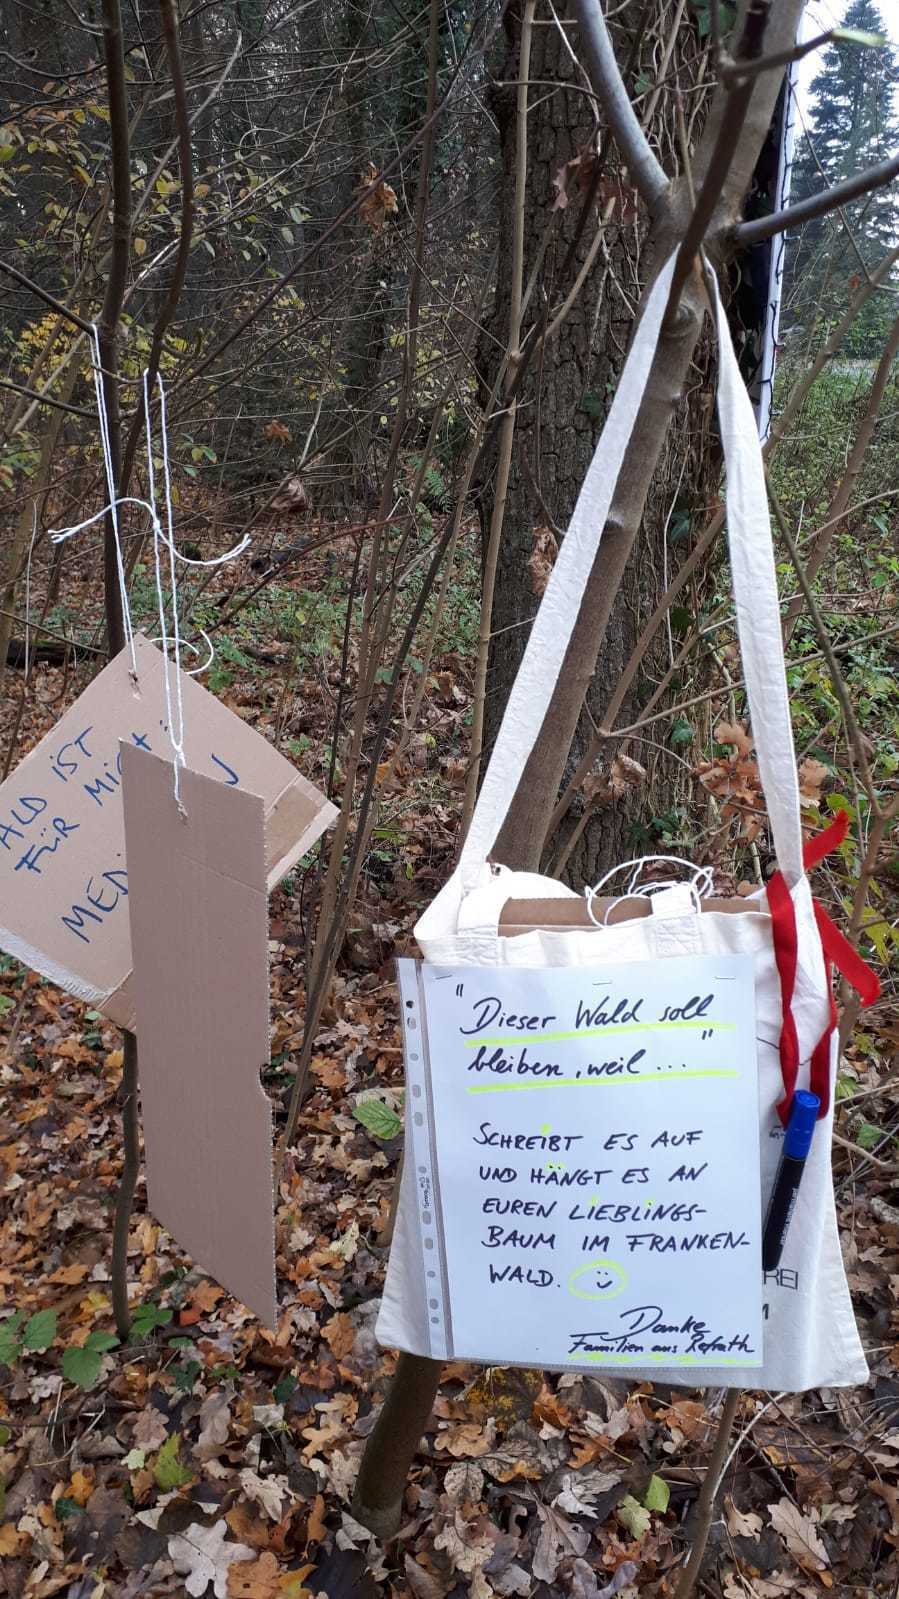 ALD IST
FÜR MICH
MEDI
"Dieser Wald soll
bleiben, weil ..."
SCHREIBT ES AUF
UND HÄNGT ES AN
EUREN LIEBLINGS-
BAUM IM FRANKEN-
WALD.
Danke
Familien aus Refrath
REI